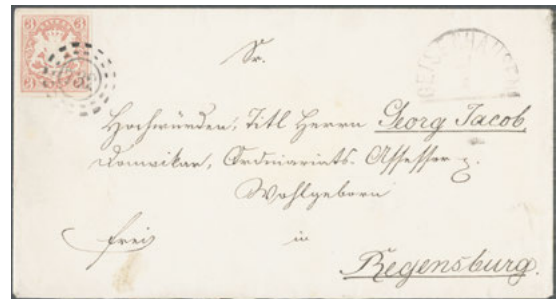 3 3
3 3
GEISENHAUSEN
Sr.
Hochwürden, Titl Herrn Georg Jacob,
Domvikar, Ordinariats-Assessor
Wohlgeborn
frei in
Regensburg.